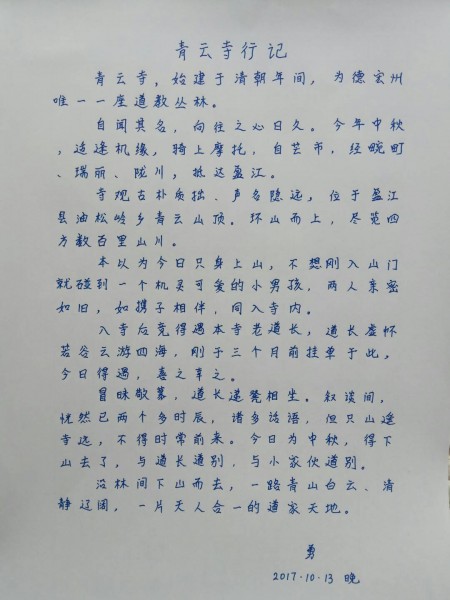 青云寺行记
青云寺，始建于清朝年间，为德宏州
唯一一座道教丛林。
自闻其名，向往之心日久。今年中秋
，适逢机缘，骑上摩托，自芒市，经畹町
、瑞丽、陇川，抵达盈江。
寺观古朴质拙、声名隐远，位于盈江
县油松岭乡青云山顶。环山而上，尽览四
方数百里山川。
本以为今日只身上山，不想刚入山门
就碰到一个机灵可爱的小男孩，两人亲密
如旧，如携子相伴，同入寺内。
入寺后竟得遇本寺老道长，道长虚怀
若谷云游四海，刚于三个月前挂单于此，
今日得遇，喜之幸之。
冒昧敬慕，道长递凳相坐。叙谈间，
恍然已两个多时辰，诸多话语，但只山遥
寺远，不得时常前来。今日为中秋，得下
山去了，与道长道别，与小家伙道别。
沿林间下山而去，一路青山白云、清
静辽阔，一片天人合一的道家天地。
勇
2017.10.13 晚